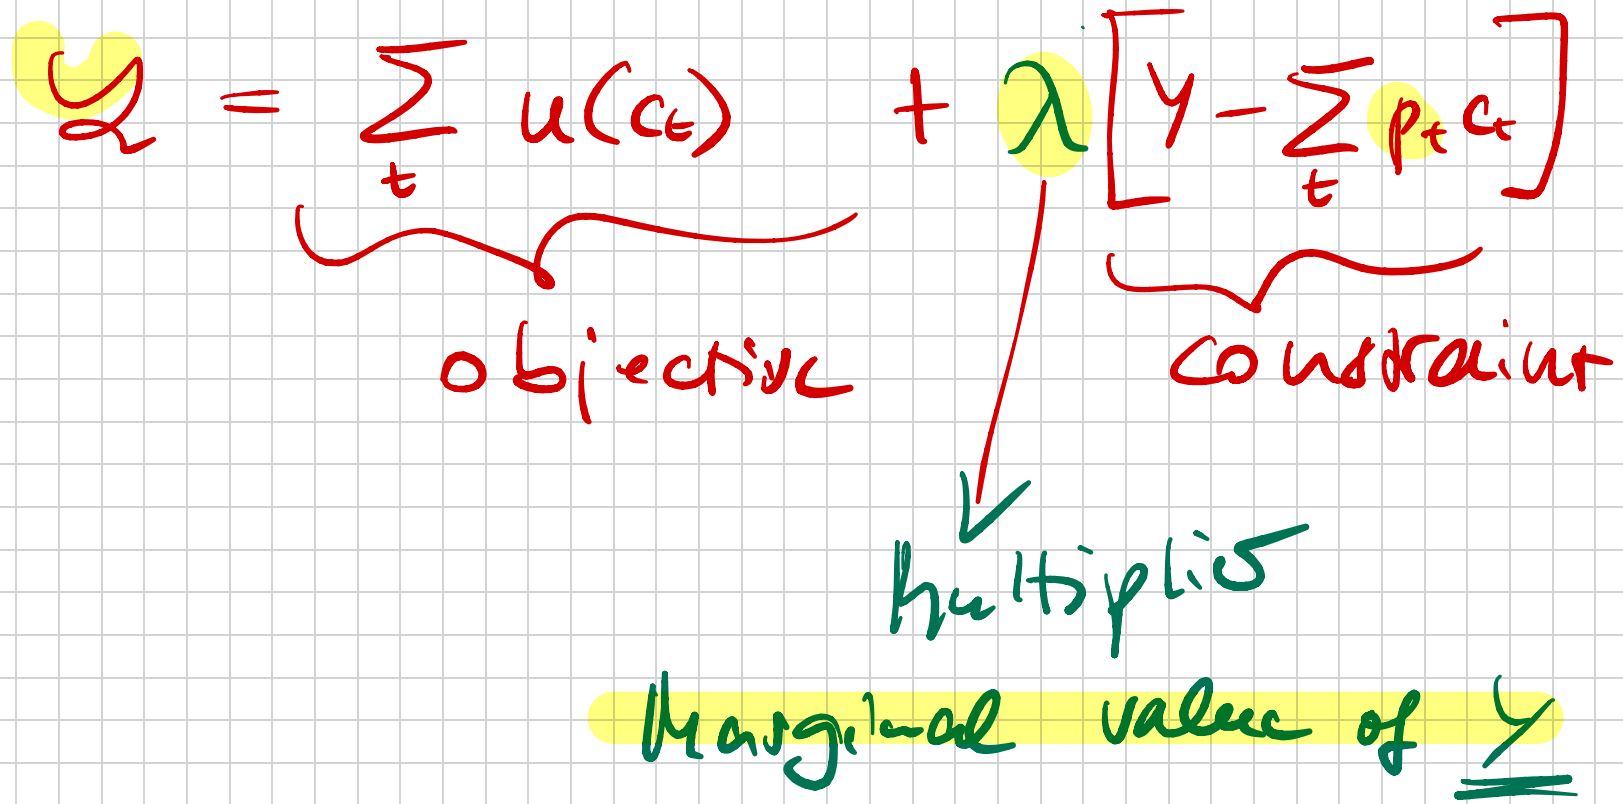 ℒ = ∑_t u(c_t) + λ [Y - ∑_t p_t c_t]
objective constraint
Multiplier
Marginal value of Y